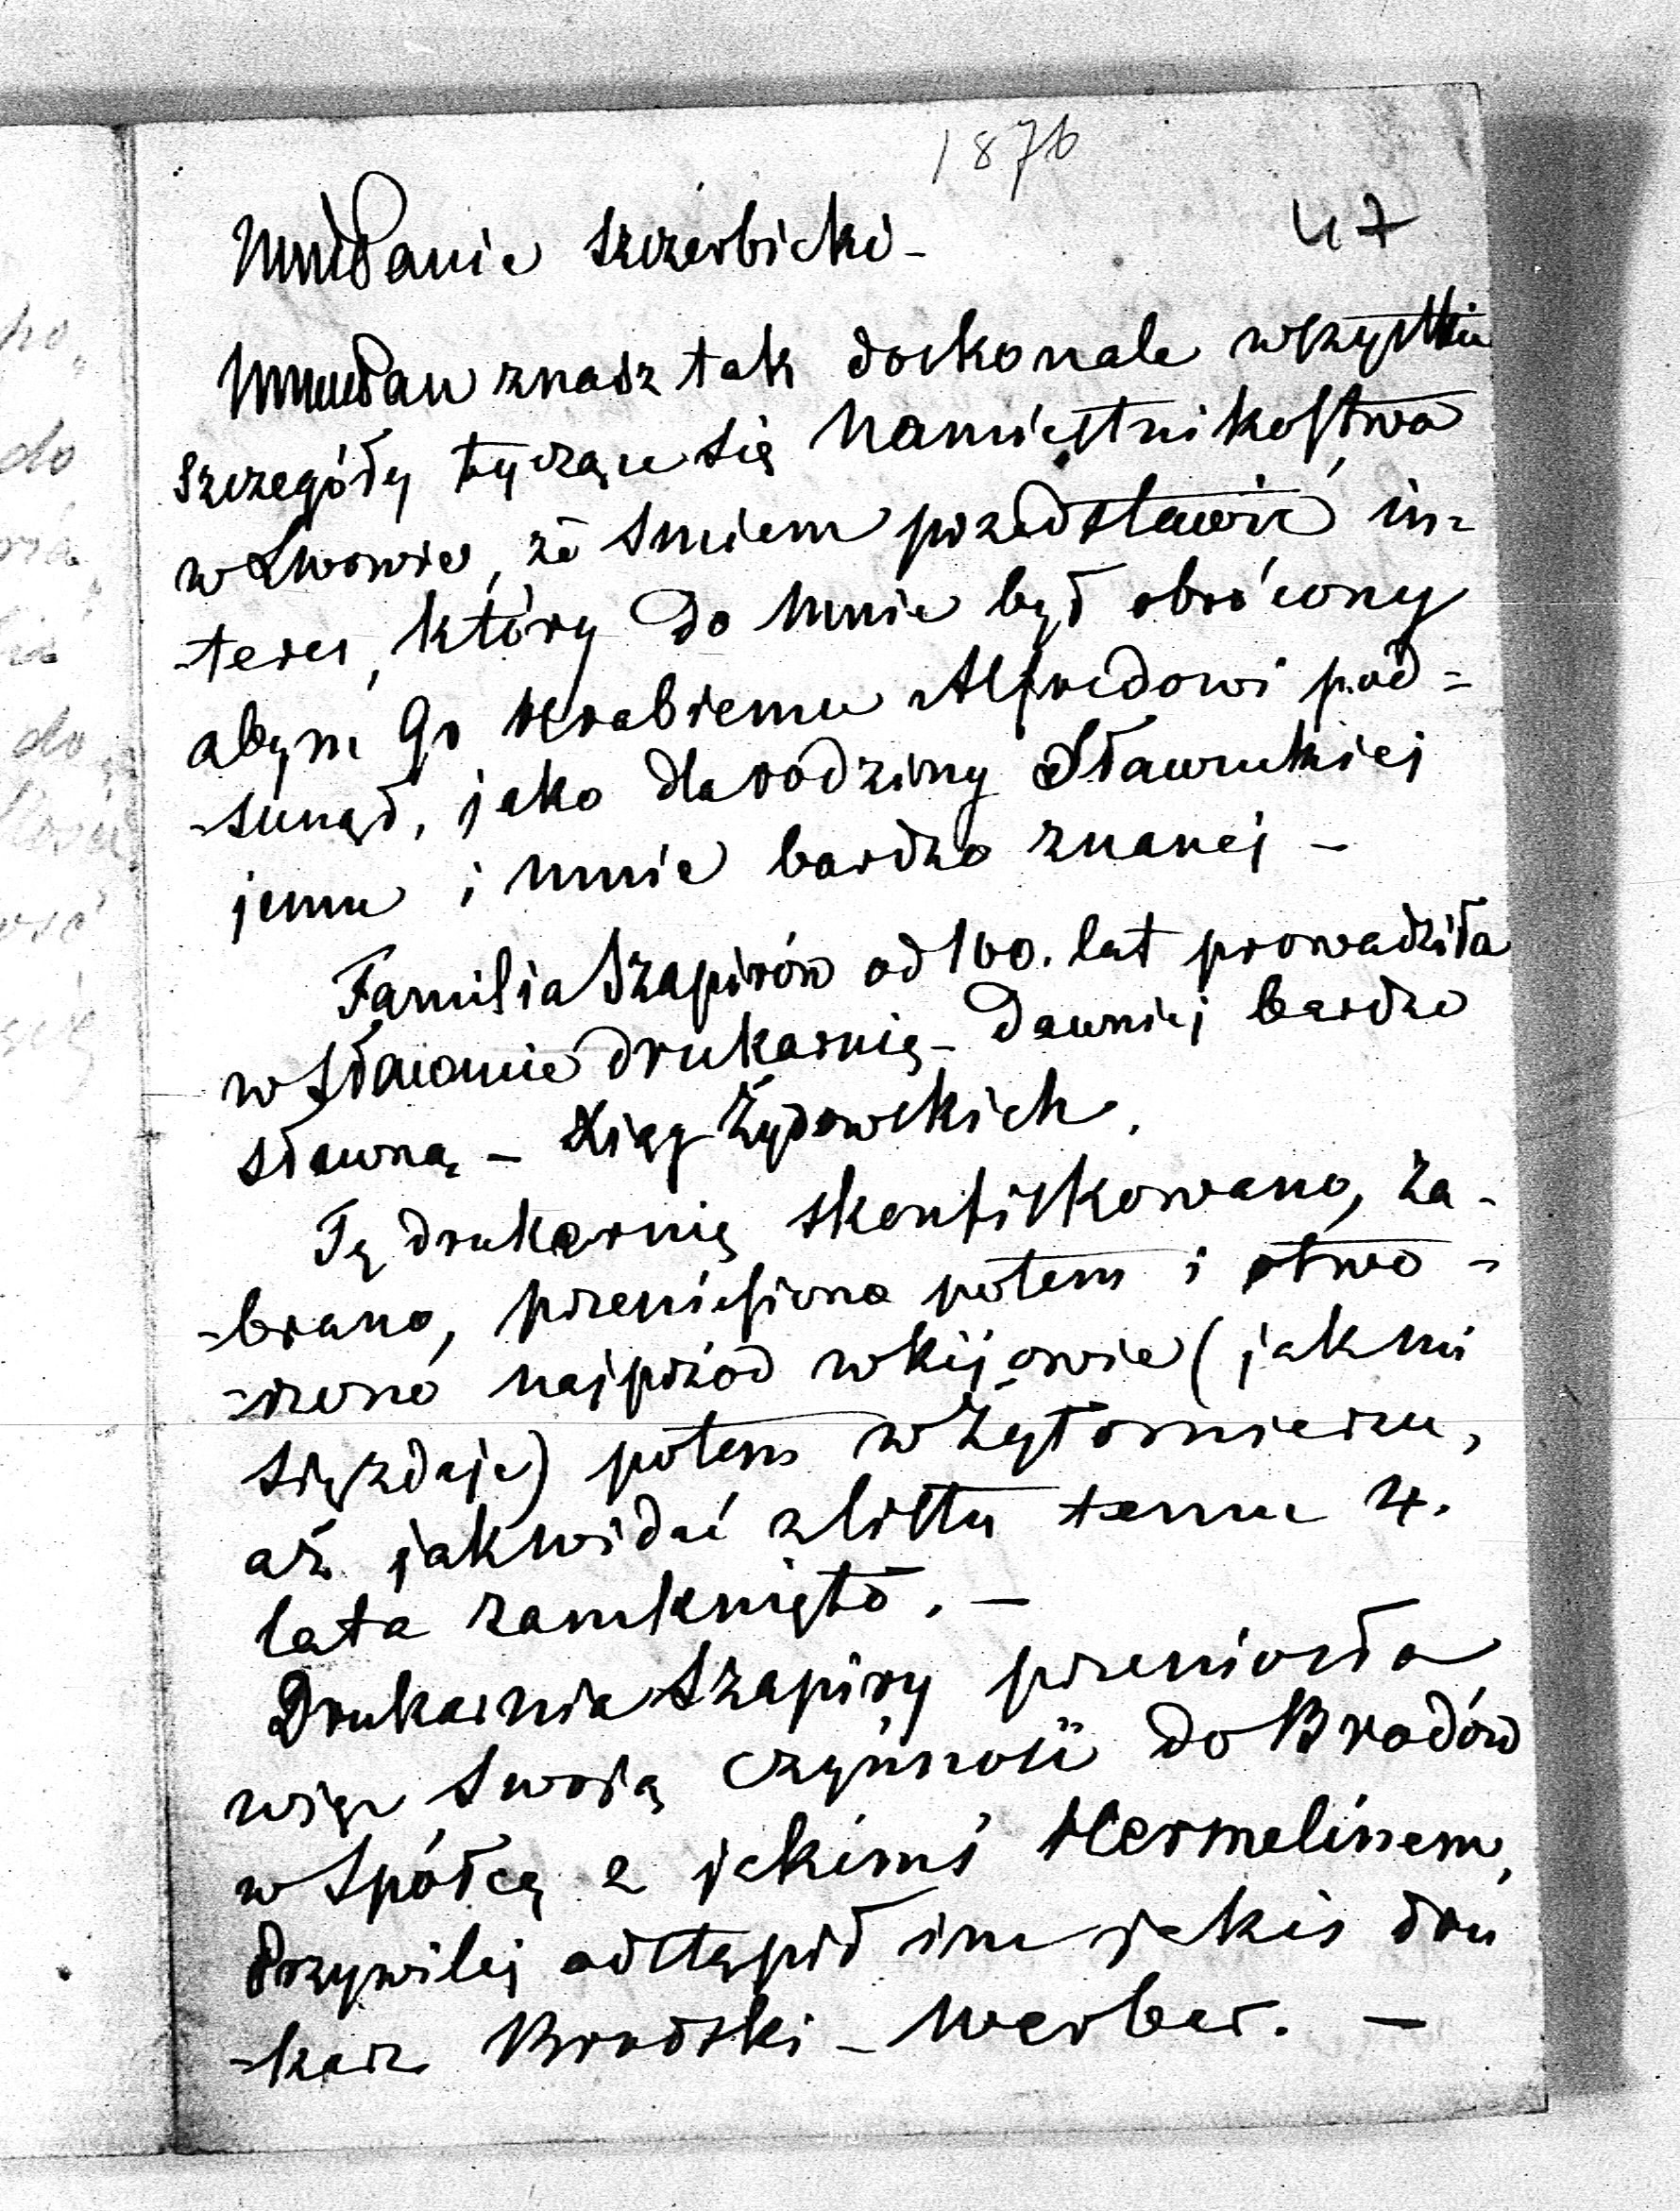 1876
47
Mości Panie Szczerbicki -
Pan znasz tak doskonale wszystkie
szczegóły tyczące się Namiestnikostwa
w Lwowie, że śmiem przedstawić in=
-teres, który do mnie był obrócony
abym Go Hrabiemu Alfredowi pod=
-sunął, jako dla rodziny Sławuckiej
jemu i mnie bardzo znanej -
Familia Szapirów od 100. lat prowadziła
w Sławucie drukarnię - dawniej bardzo
sławną - Xiąg Żydowskich.
Tę drukarnię skonfiskowano, za-
-brano, przeniesiono potem i otwo-
-rzono najprzód w Kijowie (jak mi
się zdaje) potem w Żytomierzu,
aż jak widać z listu temu 4.
lata zamknięto. -
Drukarnia Szapiry przeniosła
więc swoją czynność do Brodów
w spółcę z jakimś Hermelinem,
Przywilej odstąpił im jakiś dru
-karz Brodzki - Werber. -
ho,
do
do